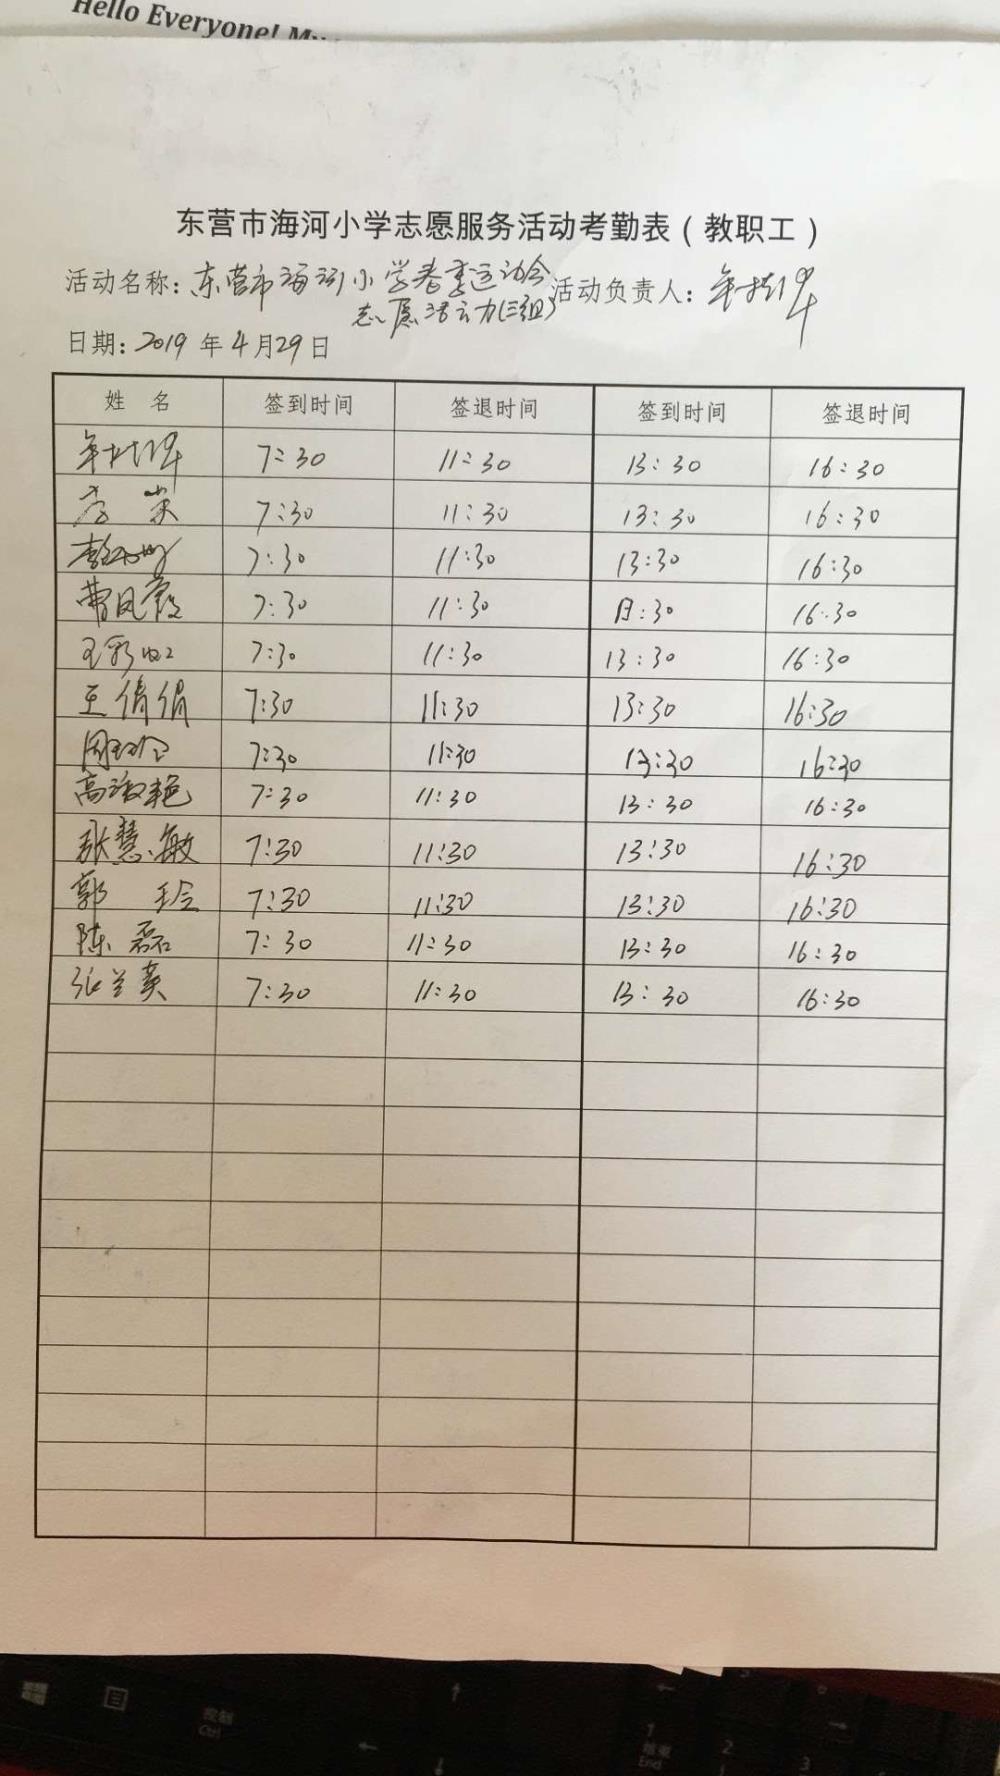 Hello Everyone!
东营市海河小学志愿服务活动考勤表（教职工）
活动名称：东营市海河小学春季运动会 活动负责人：
志愿活动(三组)
日期：2019年4月29日
姓 名 签到时间 签退时间 签到时间 签退时间
7:30 11:30 13:30 16:30
7:30 11:30 13:30 16:30
7:30 11:30 13:30 16:30
曹凤霞 7:30 11:30 13:30 16:30
王彩虹 7:30 11:30 13:30 16:30
王倩倩 7:30 11:30 13:30 16:30
7:30 11:30 13:30 16:30
高淑艳 7:30 11:30 13:30 16:30
张慧敏 7:30 11:30 13:30 16:30
郭玲 7:30 11:30 13:30 16:30
陈磊 7:30 11:30 13:30 16:30
张兰英 7:30 11:30 13:30 16:30
Ctrl
1
End
2
3